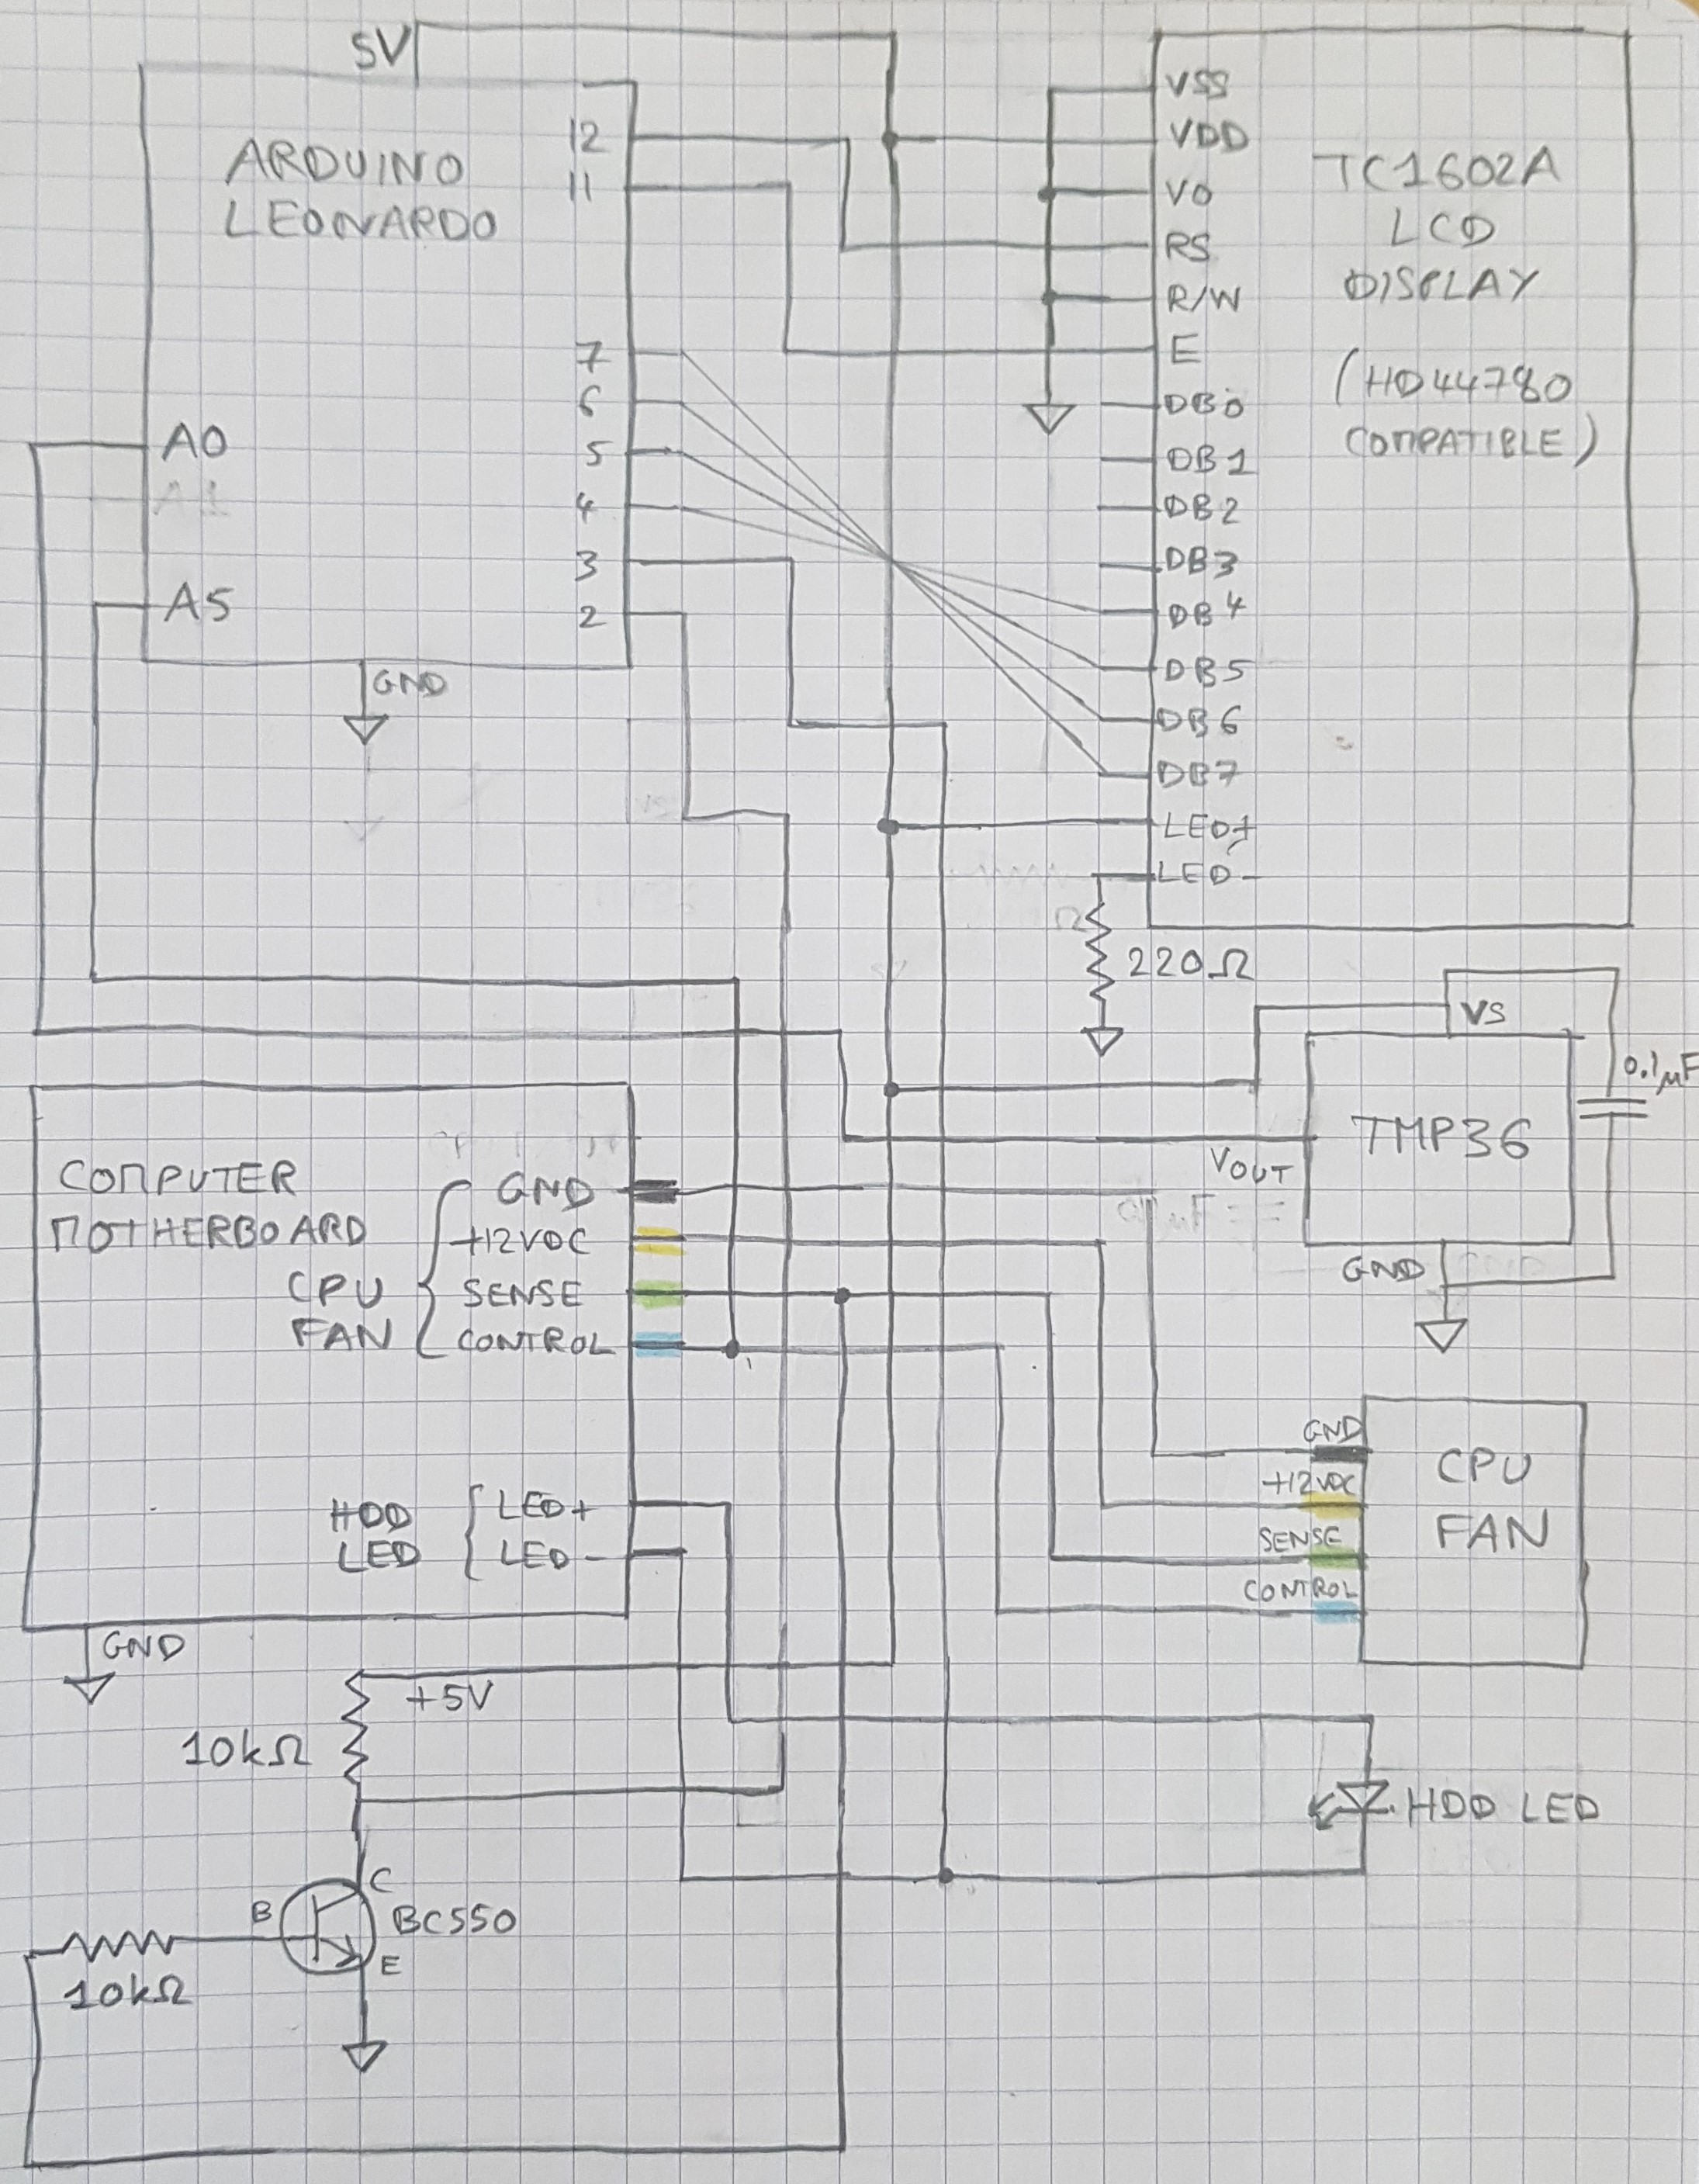 5V
ARDUINO
LEONARDO
12
11
7
6
5
4
3
2
A0
A1
A5
GND
VSS
VDD
VO
RS
R/W
E
DB0
DB1
DB2
DB3
DB4
DB5
DB6
DB7
LED+
LED-
TC1602A
LCD
DISPLAY
(HD44780
COMPATIBLE)
220Ω
VS
0.1μF
TMP36
VOUT
GND
COMPUTER
MOTHERBOARD
CPU
FAN
GND
+12VDC
SENSE
CONTROL
HDD
LED
LED+
LED-
GND
GND
+12VDC
SENSE
CONTROL
CPU
FAN
+5V
10kΩ
HDD LED
C
B
E
BC550
10kΩ